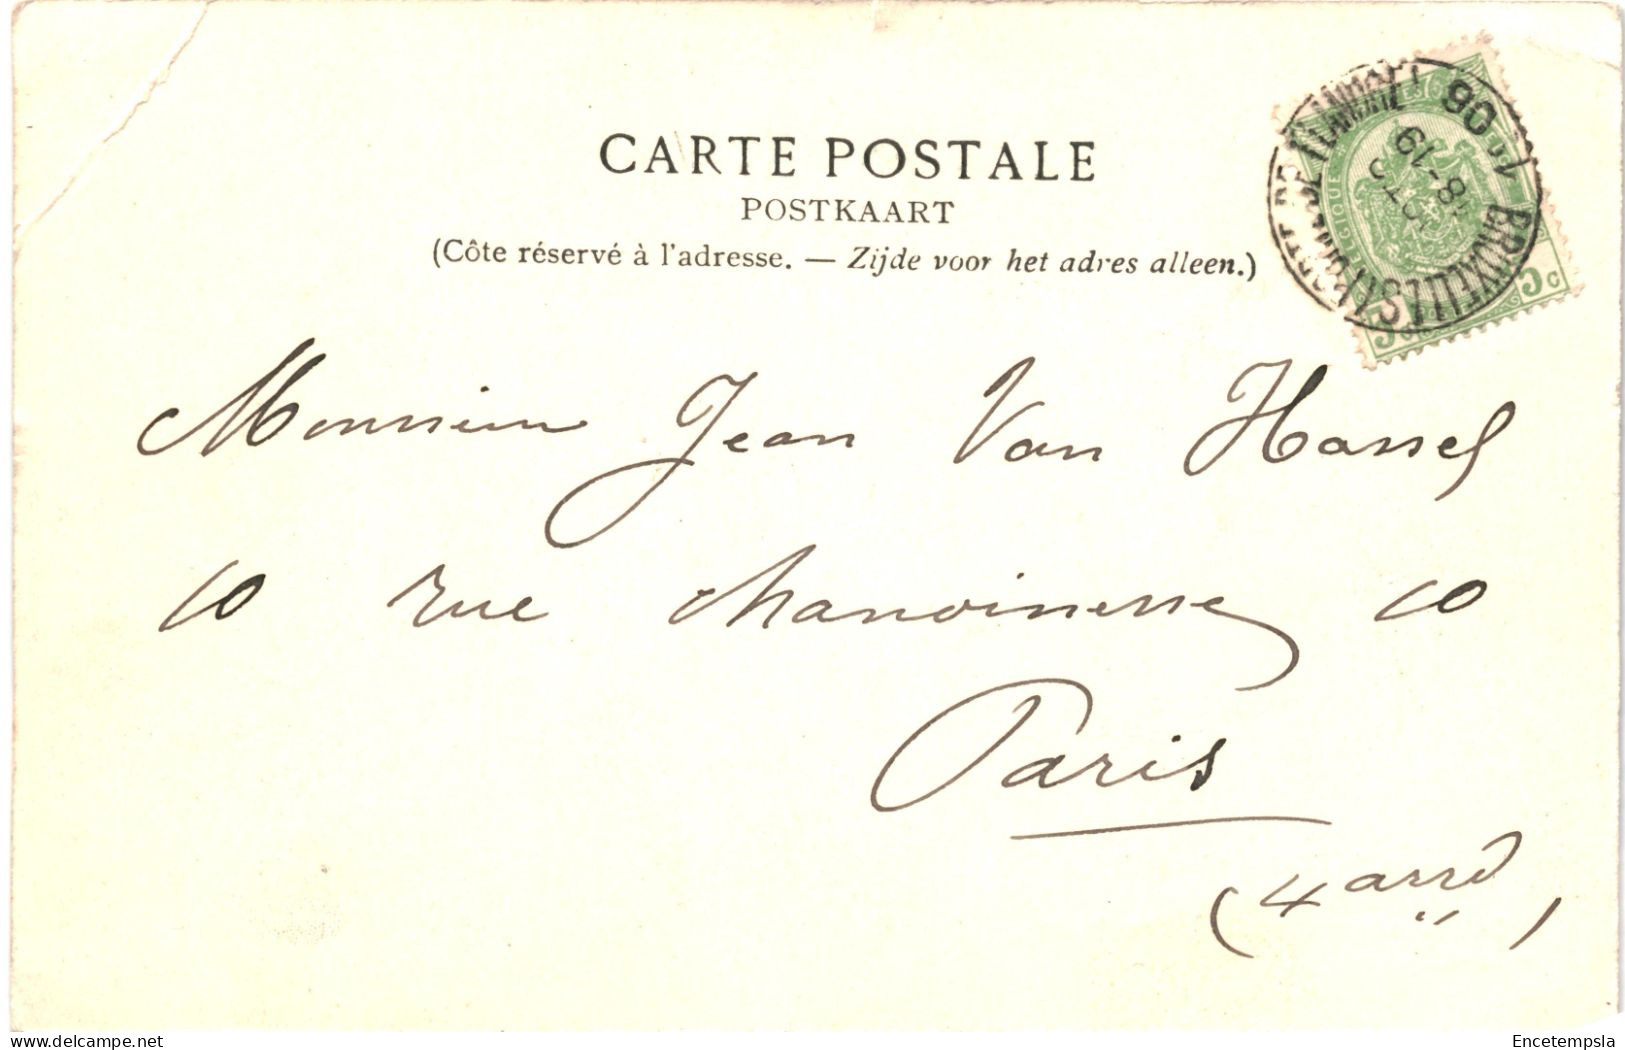 CARTE POSTALE
POSTKAART
(Côte réservé à l'adresse. — Zijde voor het adres alleen.)
BRUXELLES
18-19
OCT
06
5 c
Monsieur Jean Van Hassel
10 rue Chanoinesse 10
Paris
(4 arrd)
delcampe.net
Encetempsla